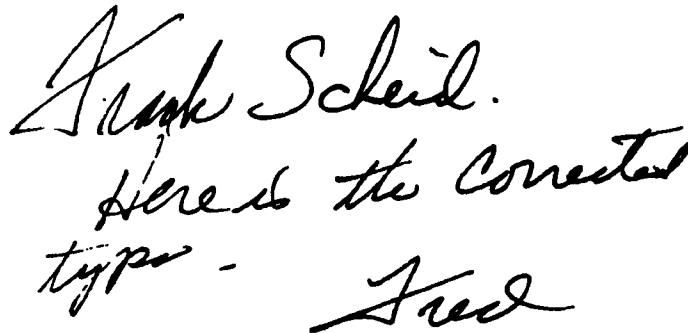 Frank Scheid.
Here is the corrected
typo -
Fred